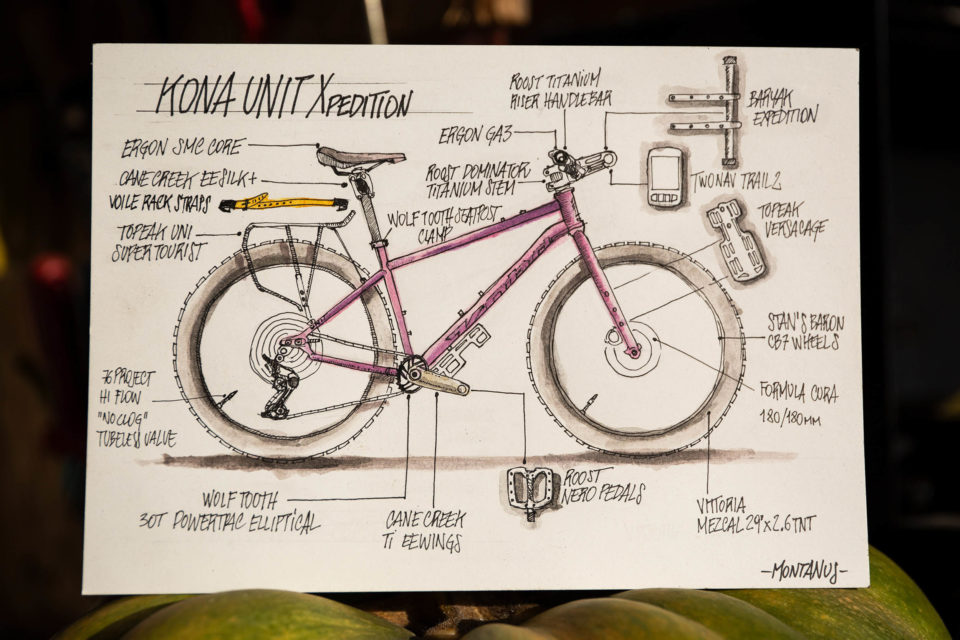 KONA UNIT XPEDITION
ERGON SMC CORE
CANE CREEK EESILK+
VOILE RACK STRAPS
TOPEAK UNI
SUPER TOURIST
ROOST TITANIUM
RISER HANDLEBAR
ERGON GA3
ROOST DOMINATOR
TITANIUM STEM
WOLF TOOTH SEATPOST
CLAMP
BARYAK
EXPEDITION
TWONAV TRAIL2
TOPEAK
VERSACAGE
STAN'S BARON
CB7 WHEELS
FORMULA CURA
180/180MM
76 PROJECT
HI FLOW
"NO CLOG"
TUBELESS VALVE
WOLF TOOTH
30T POWERTRAC ELLIPTICAL
CANE CREEK
Ti EEWINGS
ROOST
NERO PEDALS
VITTORIA
MEZCAL 29"x2.6 TNT
-MONTANUS-